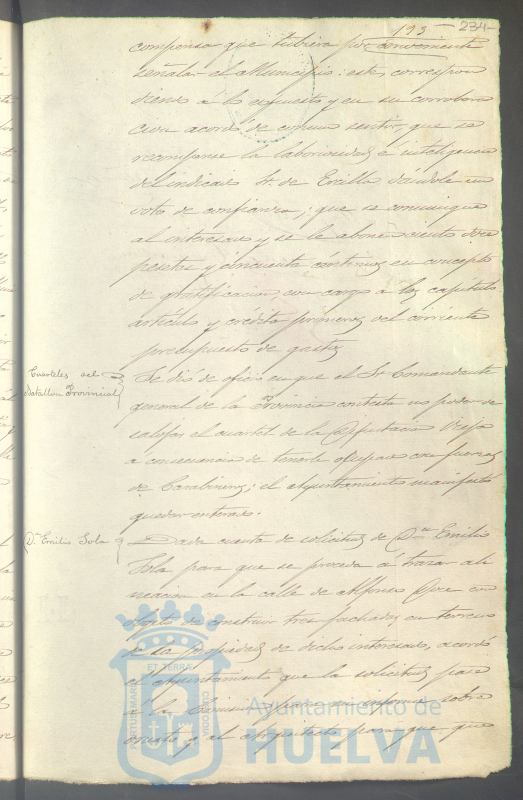 193 — 234 —
compensa que tubiera por conveniente
señalar el Municipio: este, correspon
diendo á lo espuesto y en su corrobora
cion acordó de comun sentir, que se
recompense la laboriosidad é inteligencia
del indicado Sr. de Ercilla dándole un
voto de confianza; que se comunique
al interesado y se le abone ciento doce
pesetas y cincuenta céntimos en concepto
de gratificacion, con cargo á los capítulo
artículo y crédito primeros del corriente
presupuesto de gastos.
Cuarteles del
Batallon Provincial
Se dió de oficio en que el Sr. Comandante
general de la Provincia contesta no poder de
salojar el cuartel de la Diputacion Vieja
a consecuencia de tenerle ocupado con fuerzas
de Carabineros; el Ayuntamiento manifestó
quedar enterado.
Dn. Emilio Sola
Dada cuenta de solicitud de Dn. Emilio
Sola para que se proceda á trazar ali
neacion en la calle de Alfonso Doce con
objeto de construir tres fachadas en terreno
de la propiedad de dicho interesado, acordó
el Ayuntamiento que la solicitud pase
á la Comision de sobre
ornato y al Arquitecto para que, que
ET TERRÆ
PORTUS MARIS
CUSTODIA
Ayuntamiento de
HUELVA